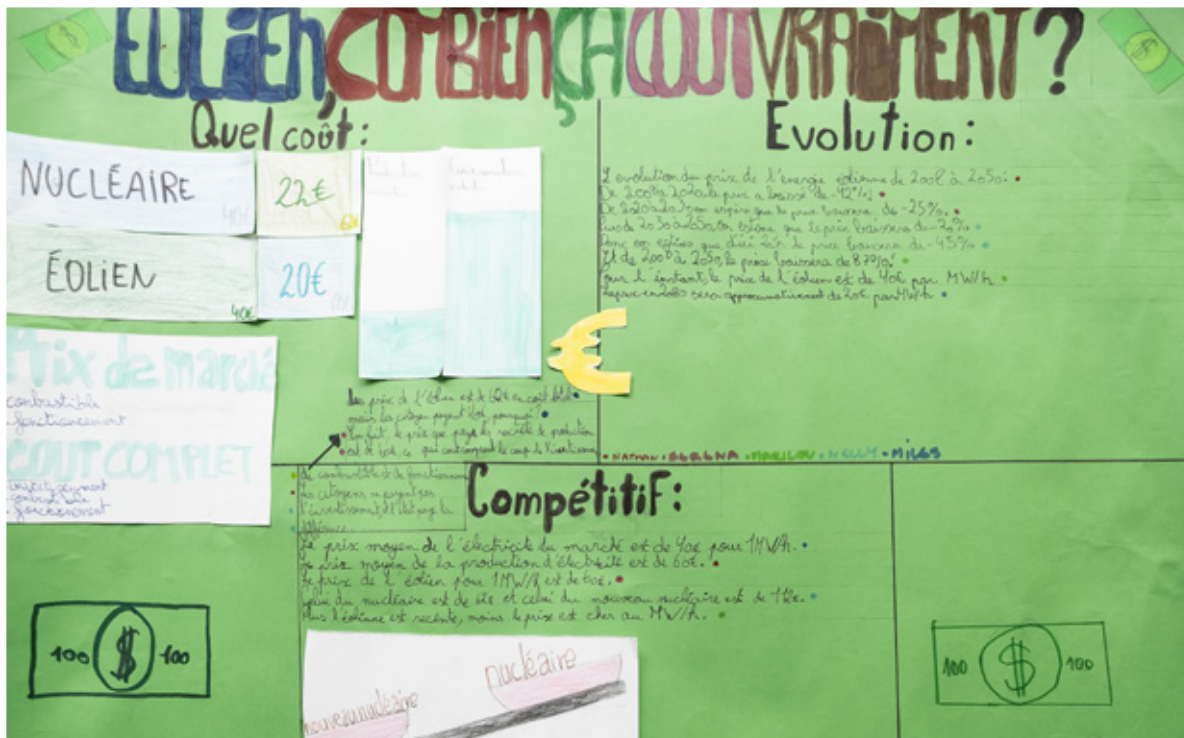 EOLIEN, COMBIEN ÇA COUT VRAIMENT ?
Quel coût :
NUCLÉAIRE
40€
22€
62€
ÉOLIEN
40€
20€
Prix de marché
combustible
fonctionnement
COUT COMPLET
investissement
combustible
fonctionnement
prix de l'éolien est de 60€ en coût total
mais les citoyen payent 40€, pourquoi?
En fait, le prix que paye la société de production
est de 60€, ce qui
de combustible et de fonctionnement
Les citoyens ne payent pas
l'investissement, l'état paye la
différence.
Evolution :
L'évolution du prix de l'énergie éolienne de 2008 à 2050 :
De 2008 à 2020, le prix a baissé de -42%.
on espère que le prix baissera de -25%.
de 2030 à 2050, on estime que le prix baissera de -20%
Donc on espère que d'ici 2050 le prix baissera de -45%
Et de 2008 à 2050, le prix baissera de 87%!
Pour l'instant, le prix de l'éolien est de 40€ par MW/h.
sera approximativement de 20€ par MW/h.
• NATHAN • • MARILOU • NELLY • MILES
Compétitif :
Le prix moyen de l'électricité du marché est de 40€ pour 1MW/h.
Le prix moyen de la production d'électricité est de 60€.
Le prix de l'éolien pour 1MW/h est de 60€.
du nucléaire est de et celui du nouveau nucléaire est de
Plus l'éolienne est récente, moins le prix est cher au MW/h.
nucléaire
nouveau nucléaire
100 $ 100
100 $ 100